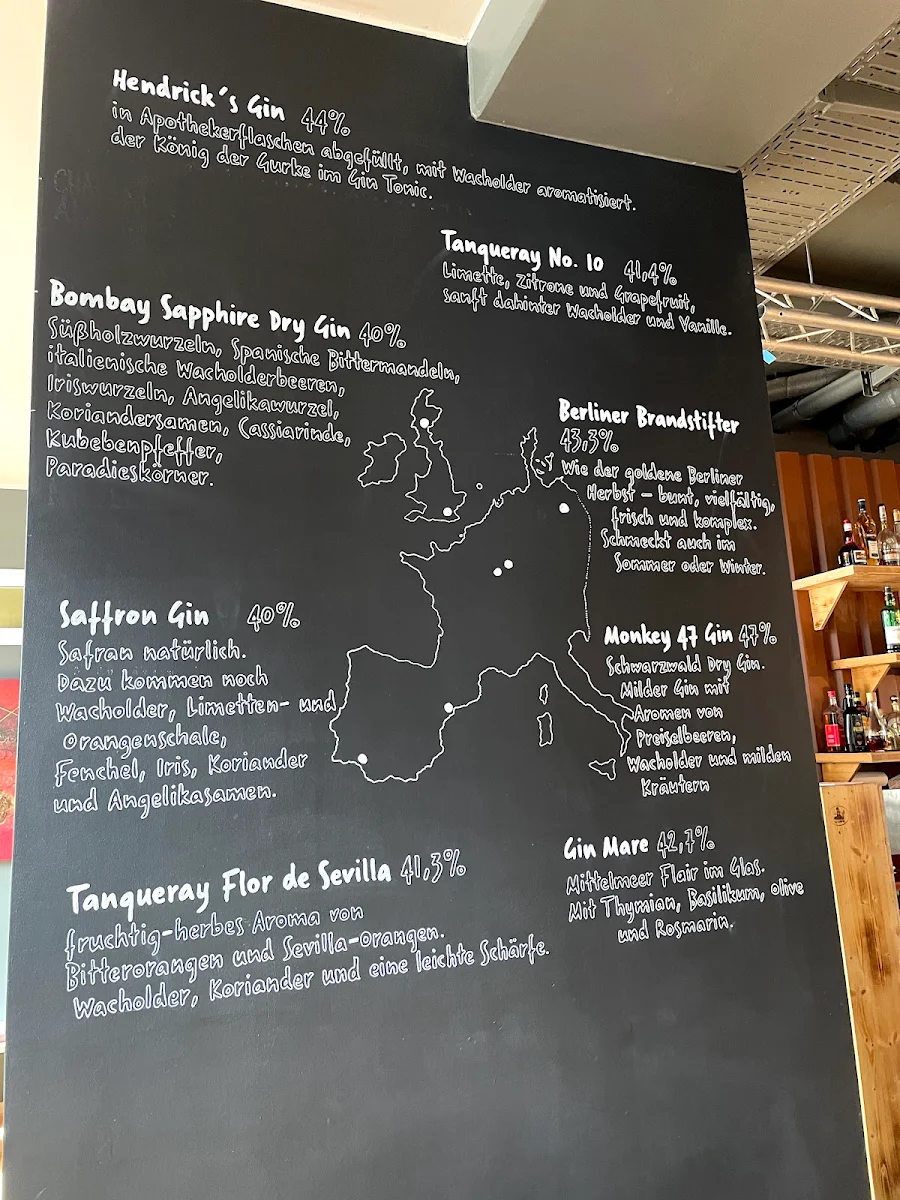 Hendrick´s Gin 44%
in Apothekerflaschen abgefüllt, mit Wacholder aromatisiert.
der König der Gurke im Gin Tonic.
Tanqueray No. 10 41,4%
Limette, Zitrone und Grapefruit,
sanft dahinter Wacholder und Vanille.
Bombay Sapphire Dry Gin 40%
Süßholzwurzeln, Spanische Bittermandeln,
italienische Wacholderbeeren,
Iriswurzeln, Angelikawurzel,
Koriandersamen, Cassiarinde,
Kubebenpfeffer,
Paradieskörner.
Berliner Brandstifter
43,3%
Wie der goldene Berliner
Herbst – bunt, vielfältig,
frisch und komplex.
Schmeckt auch im
Sommer oder Winter.
Saffron Gin 40%
Safran natürlich.
Dazu kommen noch
Wacholder, Limetten- und
Orangenschale,
Fenchel, Iris, Koriander
und Angelikasamen.
Monkey 47 Gin 47%
Schwarzwald Dry Gin.
Milder Gin mit
Aromen von
Preiselbeeren,
Wacholder und milden
Kräutern
Gin Mare 42,7%
Mittelmeer Flair im Glas.
Mit Thymian, Basilikum, Olive
und Rosmarin.
Tanqueray Flor de Sevilla 41,3%
fruchtig-herbes Aroma von
Bitterorangen und Sevilla-Orangen.
Wacholder, Koriander und eine leichte Schärfe.